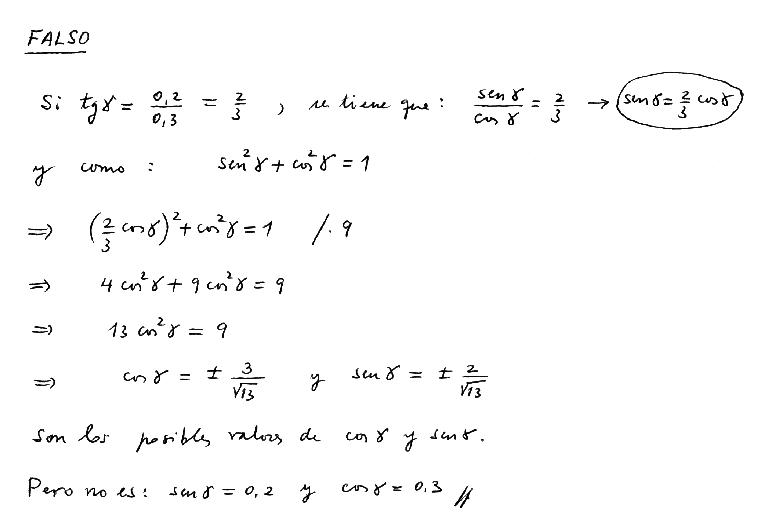 FALSO
Si tgγ = 0,2/0,3 = 2/3 , se tiene que : sen γ/cos γ = 2/3 → senγ = 2/3 cosγ
y como : sen²γ + cos²γ = 1
⇒ (2/3 cosγ)² + cos²γ = 1 /· 9
⇒ 4 cos²γ + 9 cos²γ = 9
⇒ 13 cos²γ = 9
⇒ cos γ = ± 3/√13 y sen γ = ± 2/√13
son los posibles valores de cos γ y senγ.
Pero no es : sen γ = 0,2 y cos γ = 0,3 //